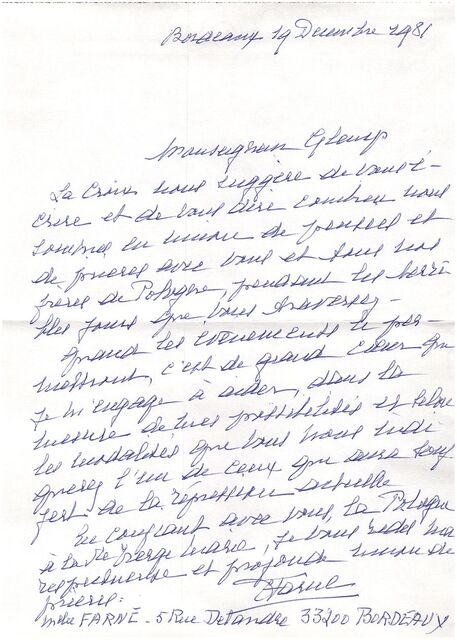 Bordeaux 19 Décembre 1981
Monseigneur Glemp
La Croix nous suggère de vous é-
crire et de vous dire combien nous
sommes en union de pensées et
de prières avec vous et tous nos
frères de Pologne, pendant les horri
bles jours que vous traversez -
Quand les évènements le per-
mettront, c'est de grand cœur que
je m'engage à aider, dans la
mesure de mes possibilités et selon
les modalités que vous nous indi
querez l'un de ceux qui aura souf
fert de la répression actuelle
En confiant avec vous, la Pologne
à la Vierge Marie, je vous redis ma
respectueuse et profonde union de
prière.
EFarne
Melle FARNE - 5 Rue 33200 BORDEAUX